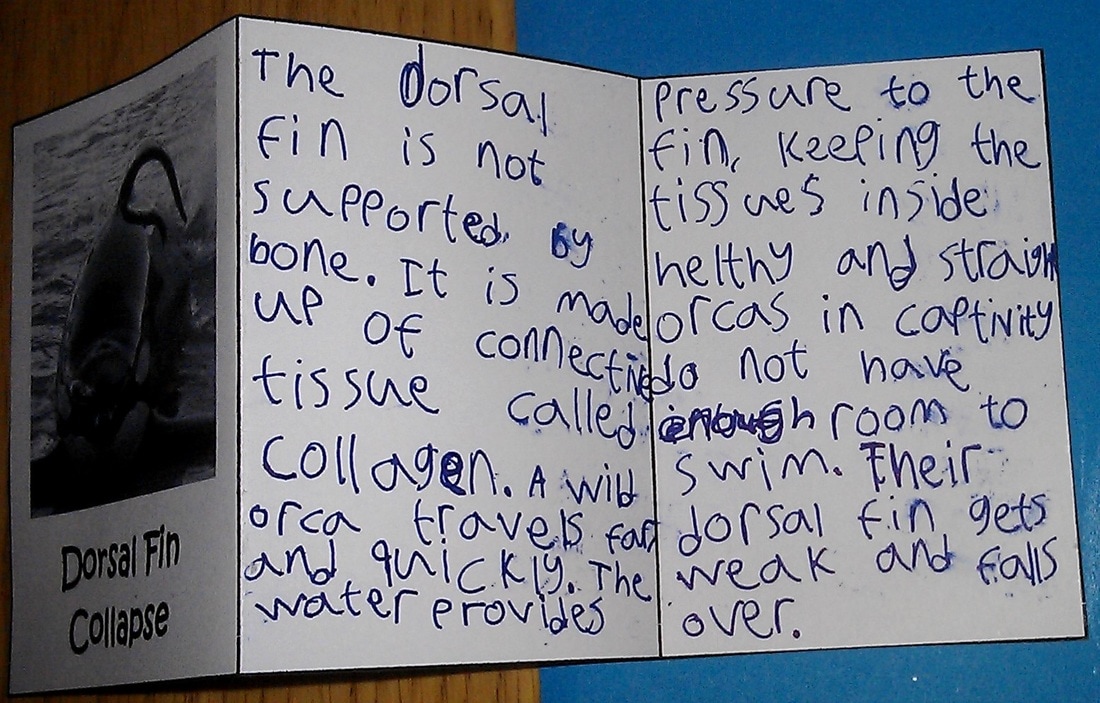 Dorsal Fin
Collapse
The dorsal
fin is not
supported by
bone. It is made
up of connective
tissue called
collagen. A wild
orca travels fast
and quickly. The
water provides
pressure to the
fin, keeping the
tissues inside
helthy and straigh
orcas in captivity
do not have
enough room to
swim. Their
dorsal fin gets
weak and falls
over.